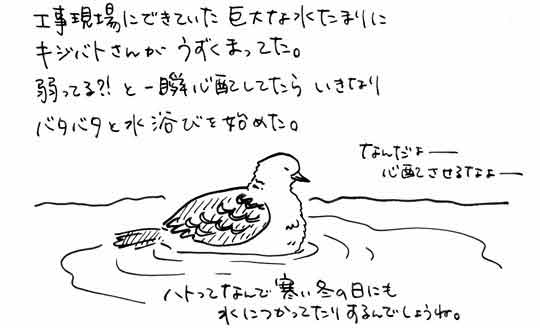 工事現場にできていた巨大な水たまりに
キジバトさんがうずくまってた。
弱ってる?!と一瞬心配してたらいきなり
バタバタと水浴びを始めた。
なんだよー
心配させるなよー
ハトってなんで寒い冬の日にも
水につかってたりするんでしょうね。